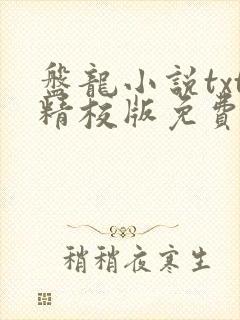 盤龍小説txt
精校版免費
稍稍夜寒生